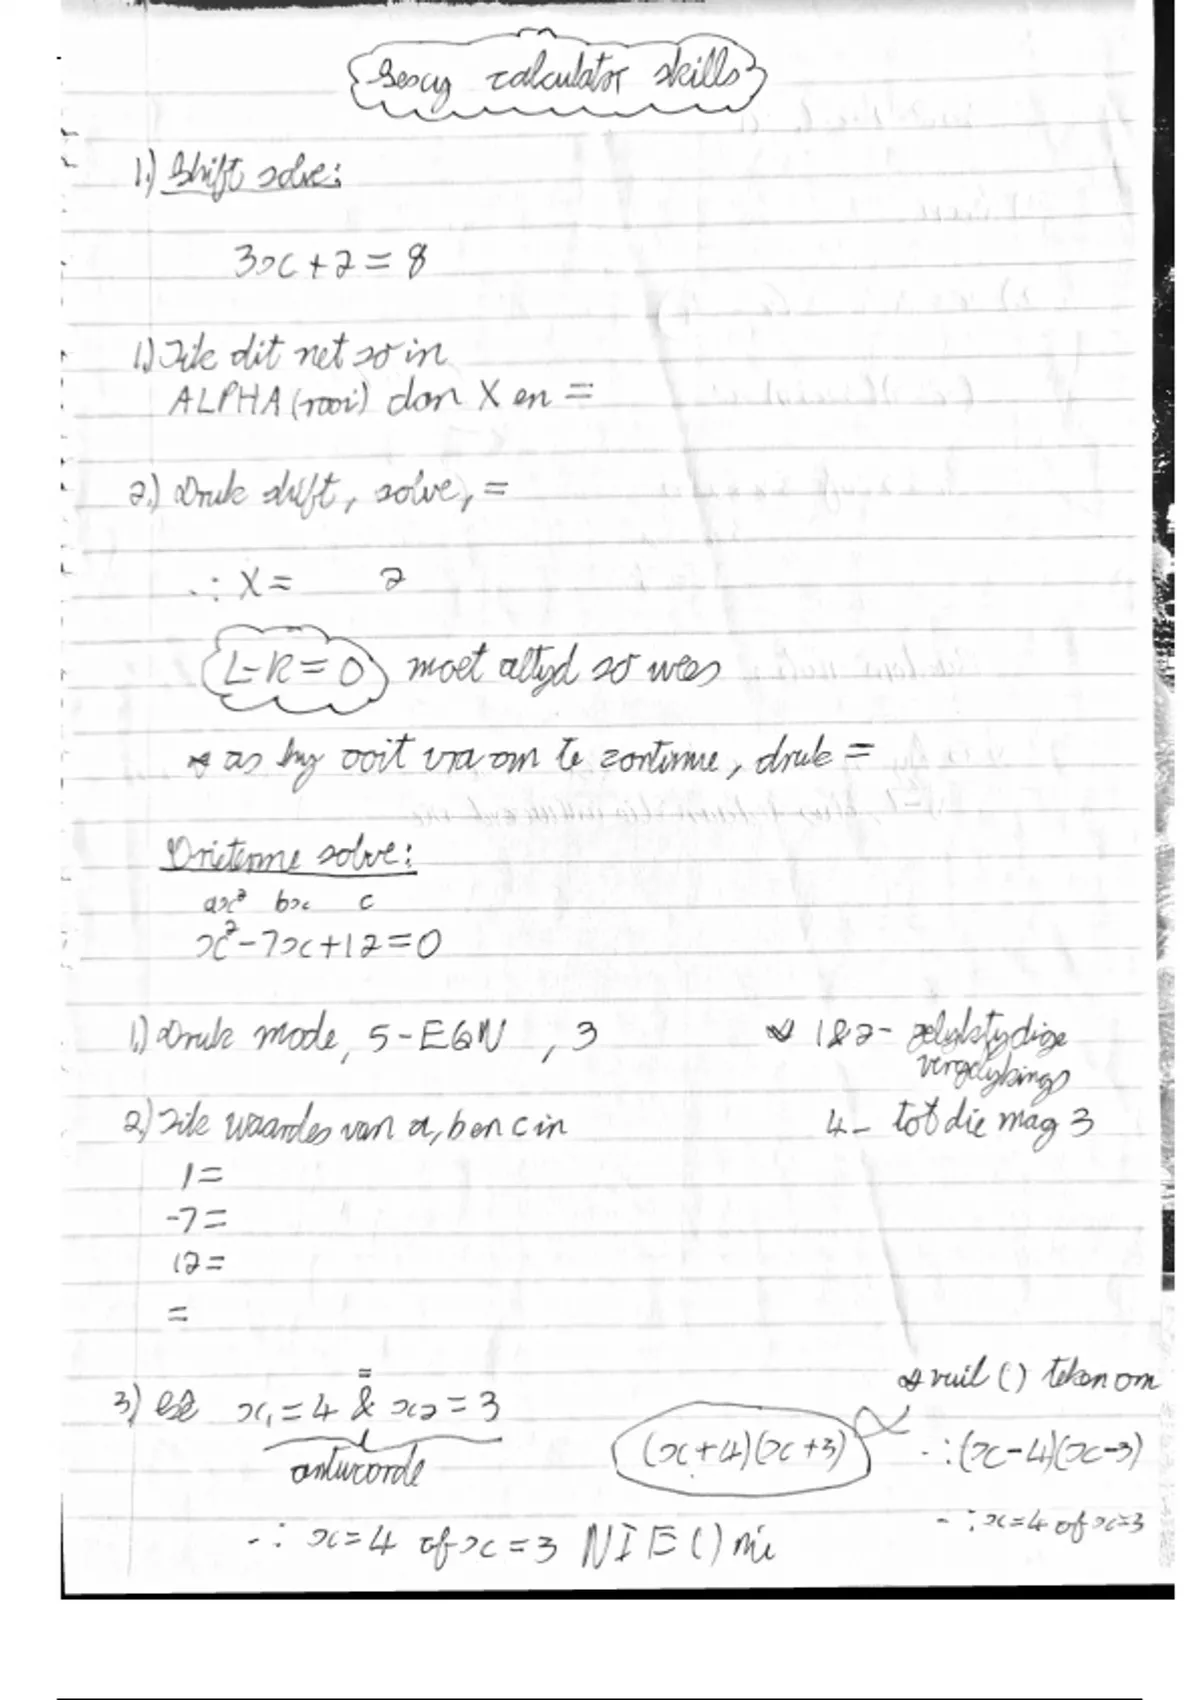 Sexy calculator skills
1.) Shift solve:
3x+2=8
1.) Tik dit net so in
ALPHA (rooi) dan X en =
2.) Druk shift, solve, =
∴ X= 2
L-R=0 moet altyd so wees
* as hy ooit vra om te continue, druk =
Drieterme solve:
ax² bx c
x²-7x+12=0
1.) Druk mode, 5-EQN, 3
* 1&2- gelyktydige
vergelykings
2.) Tik waardes van a, b en c in
4- tot die mag 3
1=
-7=
12=
=
* ruil () teken om
=
3.) x₁=4 & x₂=3
(x+4)(x+3)
∴(x-4)(x-3)
antwoorde
∴ x=4 of x=3
∴ x=4 of x=3 NIE () nie